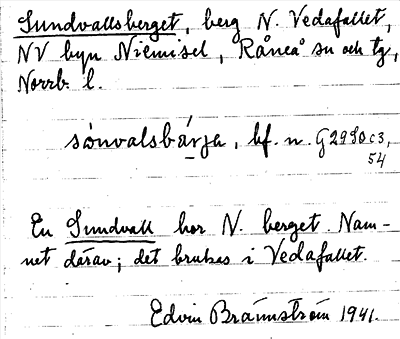 Sundvallsberget, berg N. Vedafallet,
NV byn Niemisel, Råneå sn och tg,
Norrb. l.
sònvalsbárja, bf. n. G2980c3,
54
En Sundvall bor N. berget. Nam-
net därav; det brukas i Vedafallet.
Edvin Brännström 1941.